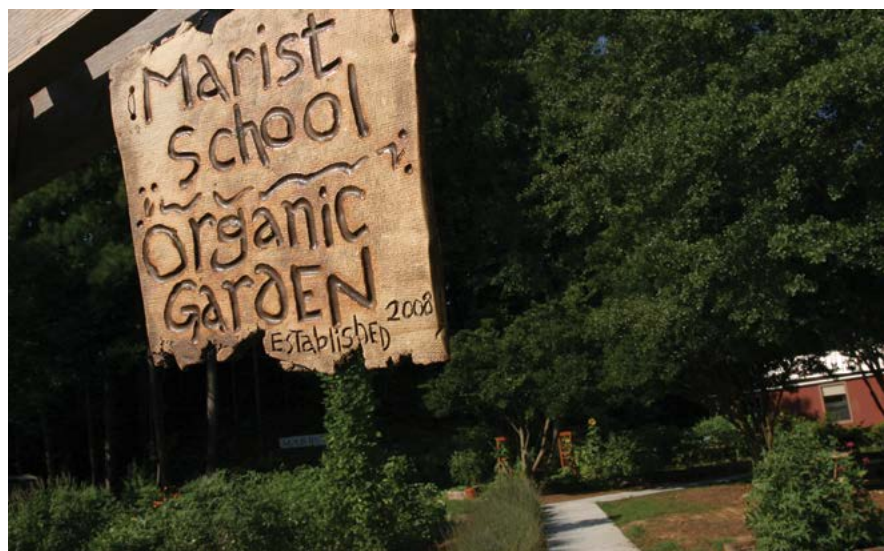 Marist
School
Organic
GarDEN
ESTablisHED 2008